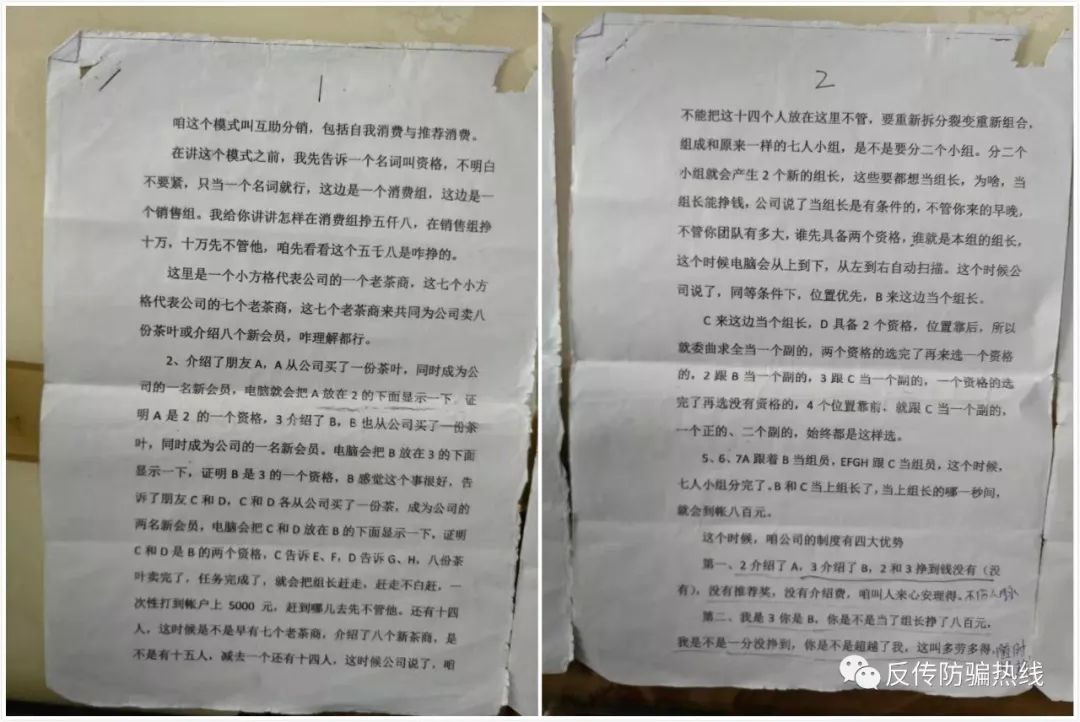 1
咱这个模式叫互助分销，包括自我消费与推荐消费。
在讲这个模式之前，我先告诉一个名词叫资格，不明白
不要紧，只当一个名词就行，这边是一个消费组，这边是一
个销售组。我给你讲讲怎样在消费组挣五仟八，在销售组挣
十万，十万先不管他，咱先看看这个五千八是咋挣的。
这里是一个小方格代表公司的一个老茶商，这七个小方
格代表公司的七个老茶商，这七个老茶商来共同为公司卖八
份茶叶或介绍八个新会员，咋理解都行。
2、介绍了朋友 A，A 从公司买了一份茶叶，同时成为公
司的一名新会员，电脑就会把 A 放在 2 的下面显示一下，证
明 A 是 2 的一个资格，3 介绍了 B，B 也从公司买了一份茶
叶，同时成为公司的一名新会员。电脑会把 B 放在 3 的下面
显示一下，证明 B 是 3 的一个资格，B 感觉这个事很好，告
诉了朋友 C 和 D，C 和 D 各从公司买了一份茶，成为公司的
两名新会员，电脑会把 C 和 D 放在 B 的下面显示一下，证明
C 和 D 是 B 的两个资格，C 告诉 E、F，D 告诉 G、H，八份茶
叶卖完了，任务完成了，就会把组长赶走，赶走不白赶，一
次性打到帐户上 5000 元，赶到哪儿去先不管他。还有十四
人，这时候是不是早有七个老茶商，介绍了八个新茶商，是
不是有十五人，减去一个还有十四人，这时候公司说了，咱
2
不能把这十四个人放在这里不管，要重新拆分裂变重新组合，
组成和原来一样的七人小组，是不是要分二个小组。分二个
小组就会产生 2 个新的组长，这些要都想当组长，为啥，当
组长能挣钱，公司说了当组长是有条件的，不管你来的早晚，
不管你团队有多大，谁先具备两个资格，谁就是本组的组长，
这个时候电脑会从上到下，从左到右自动扫描。这个时候公
司说了，同等条件下，位置优先，B 来这边当个组长。
C 来这边当个组长，D 具备 2 个资格，位置靠后，所以
就委曲求全当一个副的，两个资格的选完了再来选一个资格
的，2 跟 B 当一个副的，3 跟 C 当一个副的，一个资格的选
完了再选没有资格的，4 个位置靠前，就跟 C 当一个副的，
一个正的、二个副的，始终都是这样选。
5、6、7A 跟着 B 当组员，EFGH 跟 C 当组员，这个时候，
七人小组分完了。B 和 C 当上组长了，当上组长的哪一秒间，
就会到帐八百元。
这个时候，咱公司的制度有四大优势
第一、2 介绍了 A，3 介绍了 B，2 和 3 挣到钱没有（没
有），没有推荐奖，没有介绍费，咱叫人来心安理得。不伤人脉
第二、我是 3 你是 B，你是不是当了组长挣了八百元，
我是不是一分没挣到，你是不是超越了我，这叫多劳多得，随时
反传防骗热线